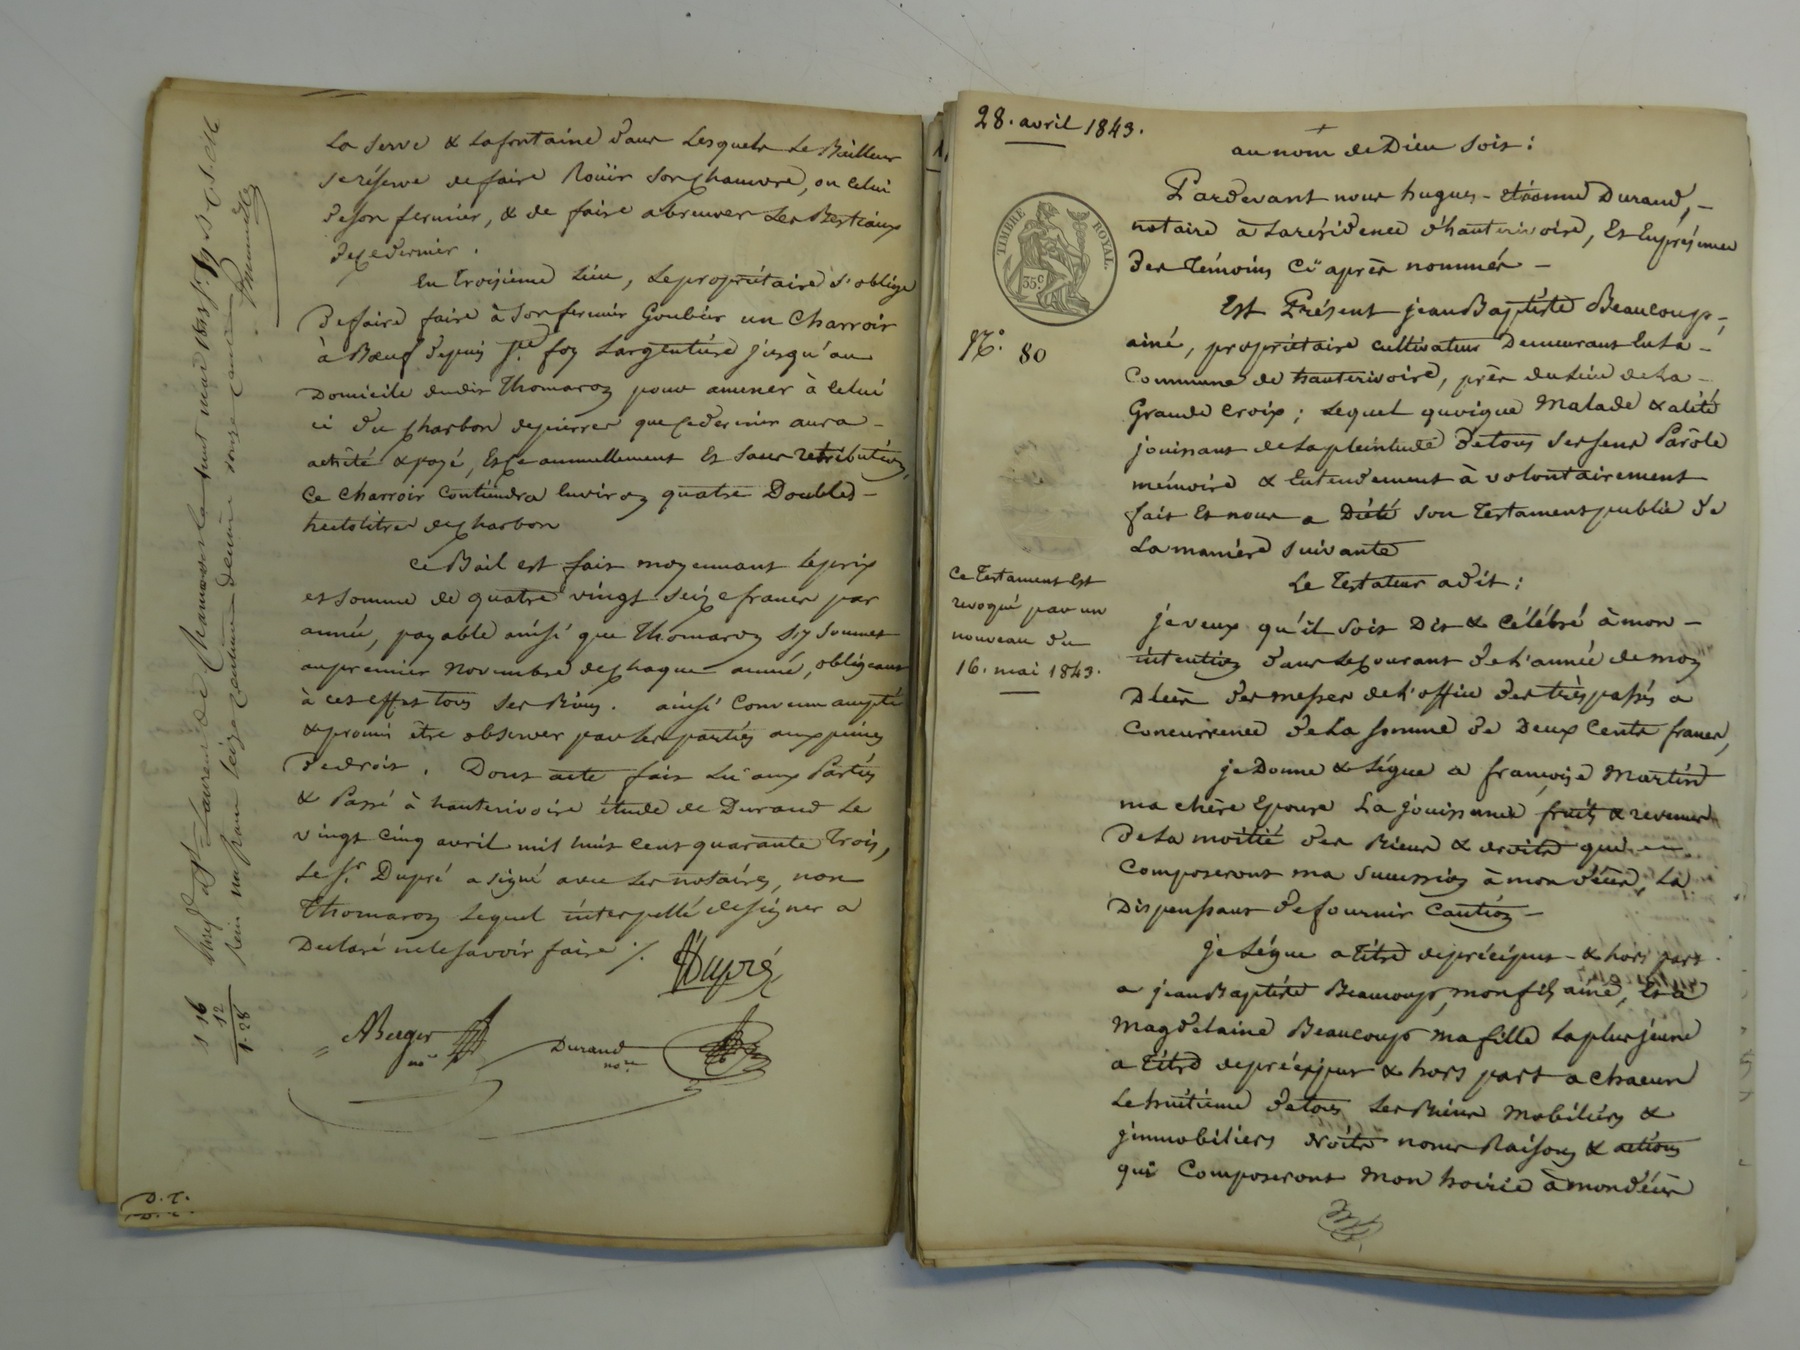 La Serve & Lafontaine dans Lesquels Le Bailleur
se réserve de faire Roüir son chauvre, ou celui
de son fermier, & de faire abreuver Les Bestiaux
de ce dernier.
En troisième Lieu, Le propriétaire s'oblige
de faire faire à son fermier Goubier un Charroir
à Bœuf depuis Ste foy Largentière jusqu'au
Domicile dudit Thomaron pour amener à celui
ci du charbon depierres que ce dernier aura
acheté & payé, Et ce annuellement Et sans retribution,
Ce charroir contiendra Environ quatre Doubles
hectolitres de charbon
Ce Bail est fait moyennant Le prix
et somme de quatre vingt seize francs par
année, payable ainsi que Thomaron s'y soumet
au premier novembre de chaque année, obligeant
à cet effet tous ses Biens. ainsi convenu accepté
& promis être observer par Les parties aux peines
de droit. Dont acte fait Lu aux Parties
& Passé à hauterivoire étude de Durand Le
vingt cinq avril mil huit cent quarante trois,
Le Sr. Dupré a signé avec Les notaires, non
Thomaron Lequel interpellé de signer a
Declaré ne le savoir faire ./.
Dupré
ABerger
no
Durand
nore
1 16
12
1.28
D.T.
D.T.
28. avril 1843.
TIMBRE ROYAL.
35c
No. 80
Ce Testament Est
revoqué par un
nouveau du
16. mai 1843.
au nom de Dieu soit:
Pardevant nous hugues-étienne Durand,
notaire à La résidence d'hauterivoire, Et En présence
des Témoins Ci après nommés
Est Présent jean Baptiste Beaucoup,
ainé, propriétaire cultivateur Demeurant En La
Commune de hauterivoire, près du Lieu de La
Grande Croix; Lequel quoique Malade & alité
jouissant de La pleintude de tous ses sens Parôle
mémoire & Entendement à volontairement
fait Et nous a Dicté son Testament public de
La manière suivante
Le Testateur a dit:
je veux qu'il soit Dit & célébré à mon
intention dans Le courant de L'année de mon
Décès des messes de L'office des trépassés a
Concurrence de La somme de Deux cents francs,
je Donne & Légue a françoise Martin
ma chère Epouse La jouissance fruits & revenus
de La moitié des Biens & droits qui
Composeront ma succession à mon décès, La
Dispensant de fournir caution
je Légue a titre de préciput & hors part
a jean Baptiste Beaucoup, mon fils ainé, Et à
Magdelaine Beaucoup ma fille La plus jeune
a titre de préciput & hors part a chacun
Le huitième de tous Les Biens Mobiliers &
jmmobiliers droits noms Raisons & actions
qui Composeront Mon hoirie à mon décès